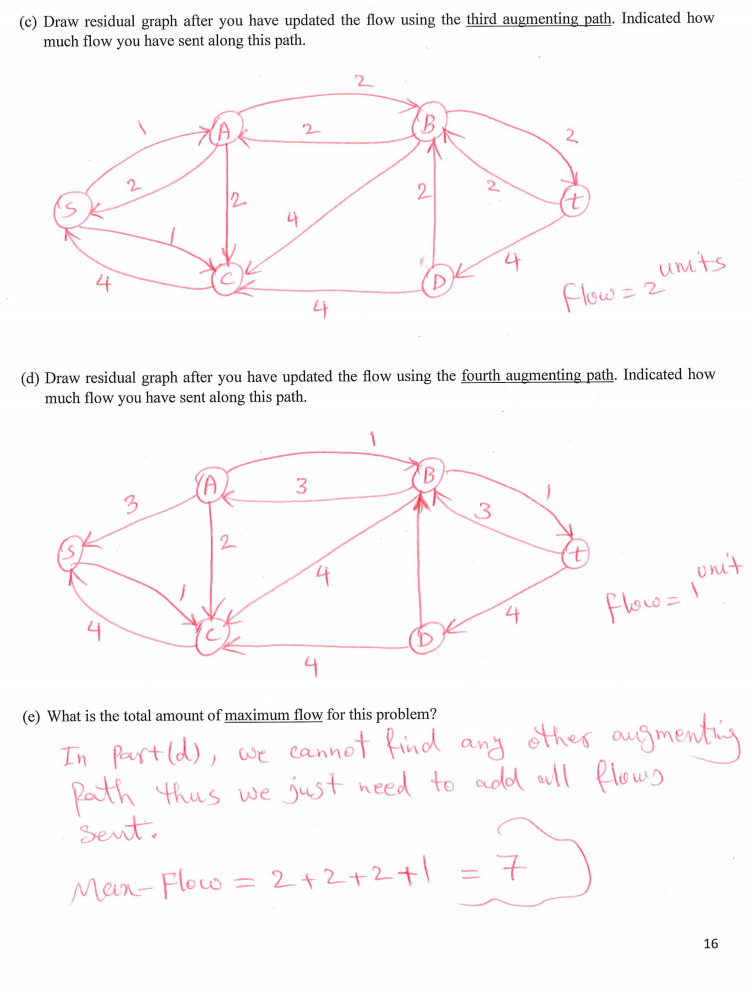 (c) Draw residual graph after you have updated the flow using the third augmenting path. Indicated how
much flow you have sent along this path.
2
1
A
2
B
2
2
S
2
4
2
2
t
1
4
C
4
D
4
flow = 2 units
(d) Draw residual graph after you have updated the flow using the fourth augmenting path. Indicated how
much flow you have sent along this path.
1
3
A
3
B
1
3
S
2
4
t
1
4
C
4
D
4
flow = 1 unit
(e) What is the total amount of maximum flow for this problem?
In Part(d), we cannot find any other augmenting
Path thus we just need to add all flows
sent.
Max-Flow = 2+2+2+1 = 7
16